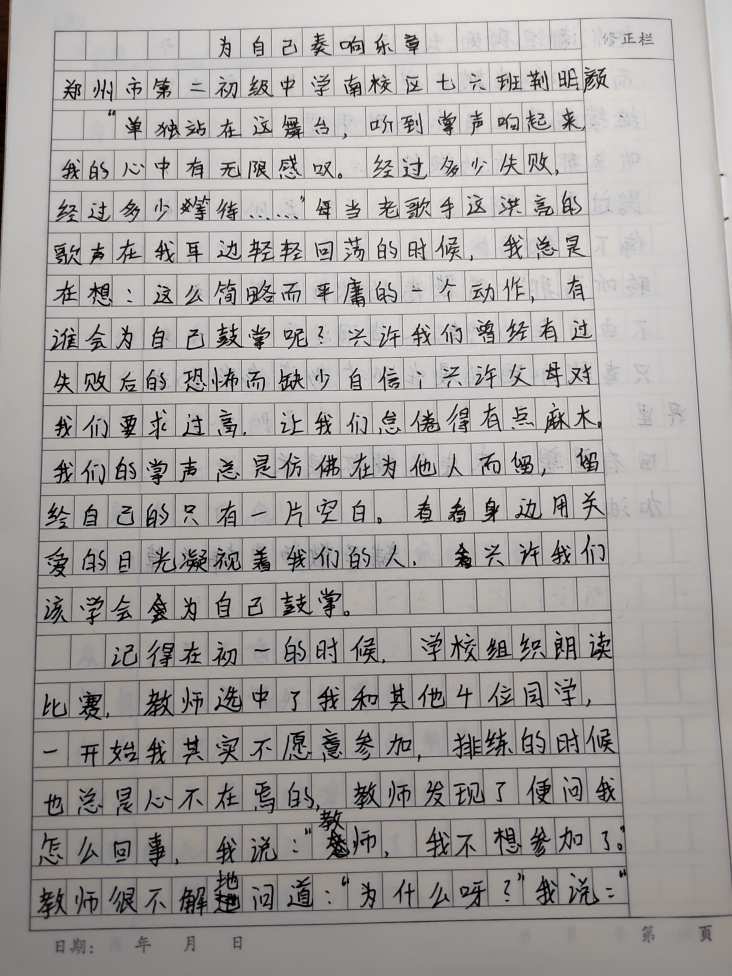 为自己奏响乐章
修正栏
郑州市第二初级中学南校区七六班荆明颜
“单独站在这舞台，听到掌声响起来，
我的心中有无限感叹。经过多少失败，
经过多少等待……”每当老歌手这洪亮的
歌声在我耳边轻轻回荡的时候，我总是
在想：这么简略而平庸的一个动作，有
谁会为自己鼓掌呢？兴许我们曾经有过
失败后的恐怖而缺少自信；兴许父母对
我们要求过高，让我们怠倦得有点麻木。
我们的掌声总是仿佛在为他人而留，留
给自己的只有一片空白。看看身边用关
爱的目光凝视着我们的人，兴许我们
该学会为自己鼓掌。
记得在初一的时候，学校组织朗读
比赛，教师选中了我和其他4位同学，
一开始我其实不愿意参加，排练的时候
也总是心不在焉的，教师发现了便问我
怎么回事，我说：“教师，我不想参加了。”
教师很不解地问道：“为什么呀？”我说：“
日期： 年 月 日
第 頁